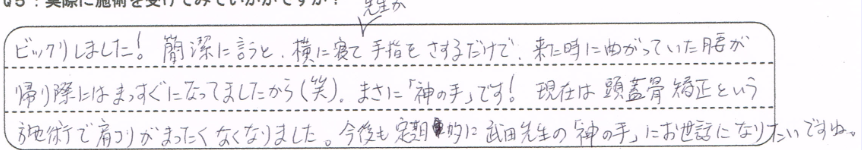 Q5：実際に施術を受けてみていかがですか？
先生が
ビックリしました！簡潔に言うと、横に寝て手指をさするだけで、来た時に曲がっていた腰が
帰り際にはまっすぐになってましたから（笑）。まさに「神の手」です！現在は頭蓋骨矯正という
施術で肩コリがまったくなくなりました。今後も定期的に武田先生の「神の手」にお世話になりたいですね。